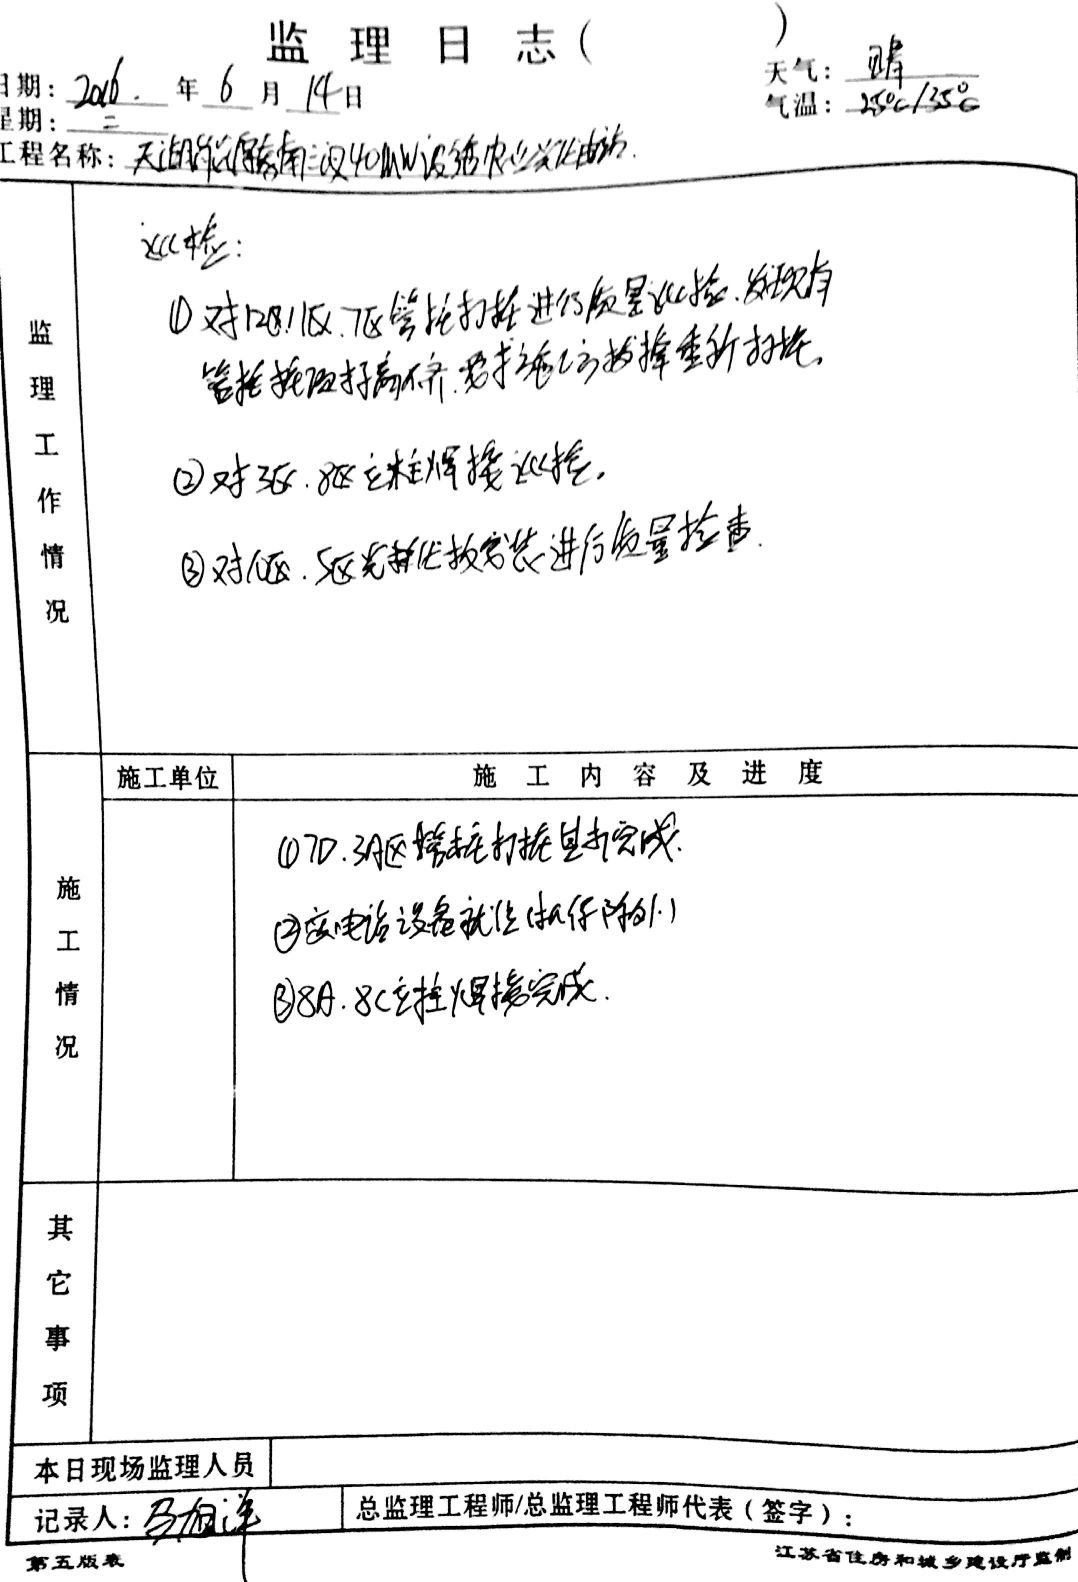 监理日志（ ）
日期：2016年6月14日 天气：晴
星期：二 气温：25℃/35℃
工程名称：40MW
监理工作情况
巡检：
①对12区.11区.7区管桩打桩进行质量巡检.发现有
管桩桩顶打高不齐.要求施工方拔掉重新打桩。
②对3区.8区立柱焊接巡检。
③对区.5区光伏板安装进行质量检查.
施工情况
施工单位 施工内容及进度
①7D.3A区管桩打桩完成.
②设备就位
③8A.8C立柱焊接完成.
其它事项
本日现场监理人员
记录人： 总监理工程师/总监理工程师代表（签字）：
第五版表 江苏省住房和城乡建设厅监制